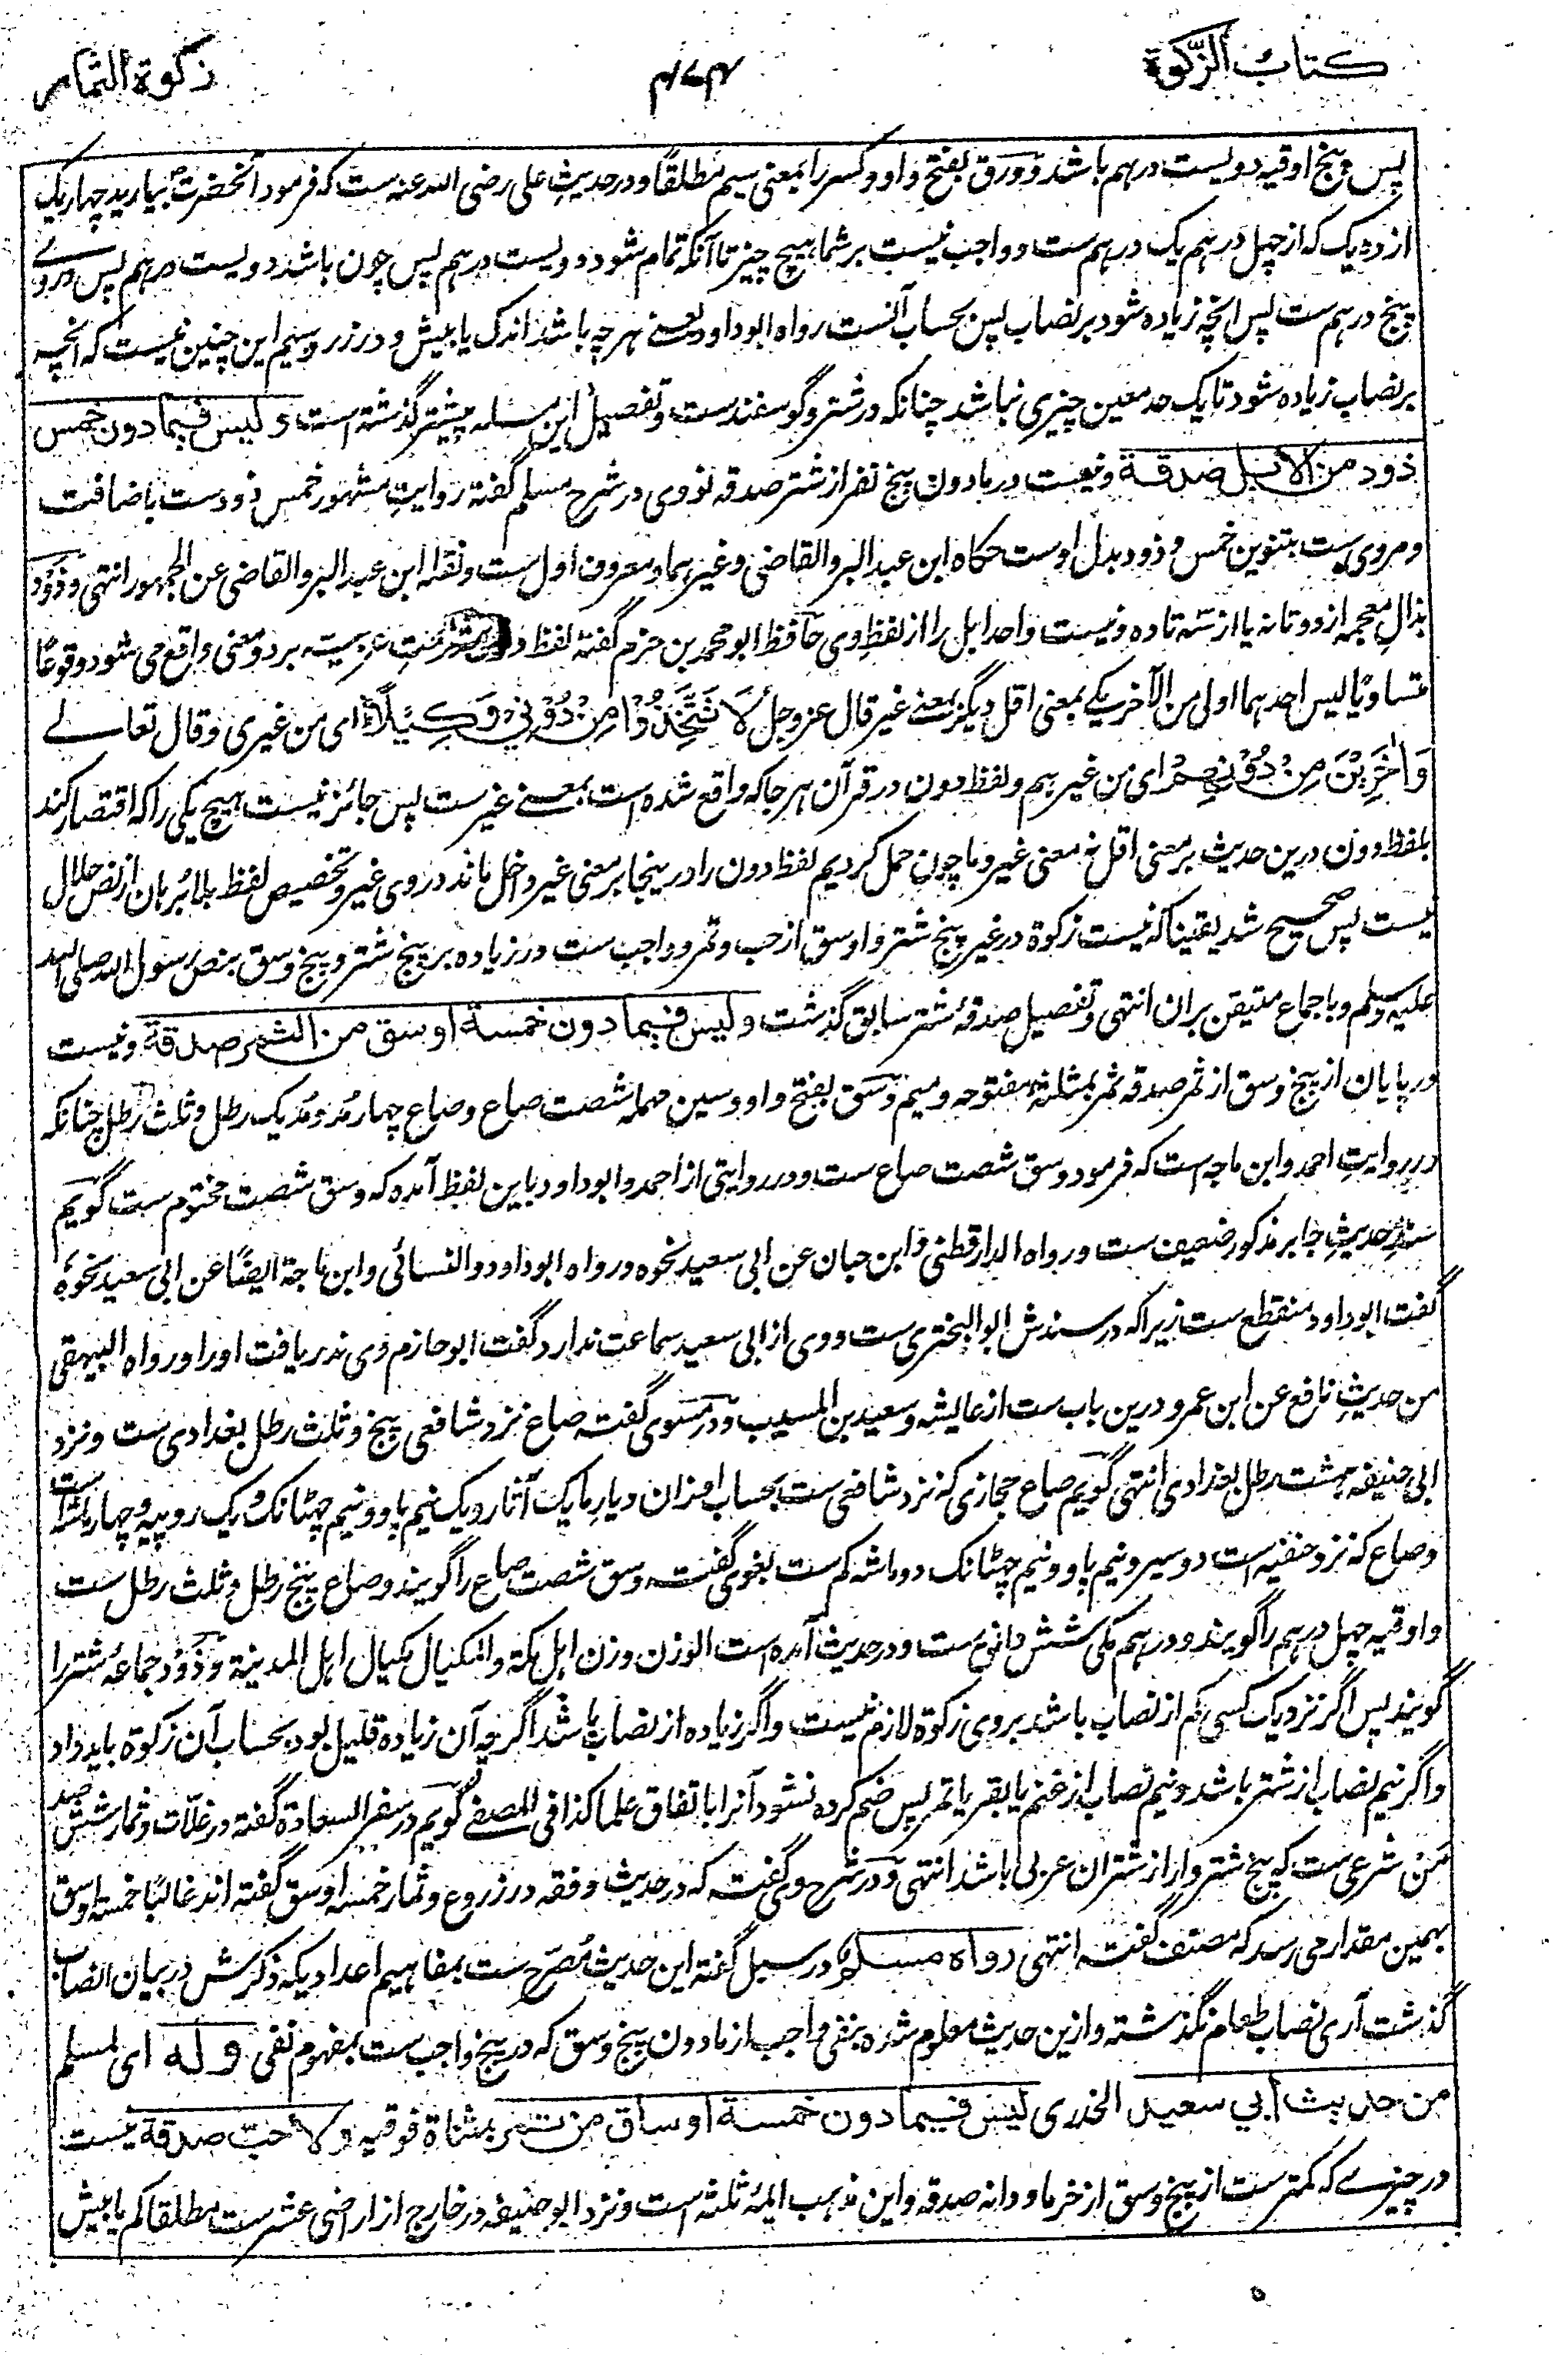 کتاب الزکوة
۴۷۴
زکوة الثمار
پس پنج اوقیه دویست درهم باشد و ورق بفتح واو و کسر را بمعنی سیم مطلقاً و در حدیثِ علی رضی الله عنه ست که فرمود آنحضرت بیارید چهاریک
از ده یک که از چهل درهم یک درهم ست و واجب نیست بر شما هیچ چیز تا آنکه تمام شود دویست درهم پس چون باشد دویست درهم پس درو
پنج درهم ست پس انچه زیاده شود بر نصاب پس بحساب آنست رواه ابو داود یعنے هرچه باشد اندک یا بیش و در زر و سیم این چنین نیست که انچه
بر نصاب زیاده شود تا یک حد معین چیزی نباشد چنانکه در شتر و گوسفند ست و تفصیل این مسله پیشتر گذشته است و لیس فیما دون خمس
ذود من الابل صدقة و نیست در مادون پنج نفر از شتر صدقه نووی در شرح مسلم گفته روایتِ مشهور خمس ذود ست باضافت
و مروی ست بتنوین خمس و ذود بدل اوست حکاه ابن عبد البر و القاضی و غیرهما و معروف اول ست و نقله ابن عبد البر و القاضی عن الجمهور انتهی و ذَوْد
بذال معجمه از دو تا نه یا از سه تا ده و نیست واحد ابل را از لفظِ وی حافظ ابو محمد بن حزم گفته لفظ دون در لغتِ عربیت بر دو معنی واقع می شود وقوعًا
متساویًا لیس احدهما اولی من الآخر یکے بمعنی اقل دیگر بمعنے غیر قال عز وجل لَا تَتَّخِذُوْا مِنْ دُوْنِیْ وَکِیْلًا ای من غیری و قال تعالے
وَاٰخَرِیْنَ مِنْ دُوْنِهِمْ ای من غیرهم و لفظ دون در قرآن هرجا که واقع شده است بمعنے غیر ست پس جائز نیست هیچ یکی را که اقتصار کند
بلفظ دون درین حدیث بر معنی اقل نه معنی غیر و ما چون حمل کردیم لفظ دون را در ینجا بر معنی غیر داخل ماند در وی غیر و تخصیص لفظ بلا بُرهان از نص حلال
نیست پس صحیح شد یقینا که نیست زکوة در غیر پنج شتر و اوسق از حب و تمر و واجب ست در زیاده بر پنج شتر و پنج وسق بنص رسول الله صلی الله
علیه وسلم و باجماع متیقن بران انتهی و تفصیل صدقهٔ شتر سابق گذشت و لیس فیما دون خمسة اوسق من الثمر صدقة و نیست
در پایان از پنج وسق از ثمر صدقه ثمر بمثلثهٔ مفتوحه و میم وَسْق بفتح واو و سین مهمله شصت صاع و صاع چهار مُد و مُد یک رطل و ثلث رطل چنانکه
در روایتِ احمد و ابن ماجه است که فرمود وسق شصت صاع ست و در روایتی از احمد و ابو داود باین لفظ آمده که وسق شصت مختوم ست گویم
سندِ حدیثِ جابر مذکور ضعیف ست و رواه الدارقطنی و ابن حبان عن ابی سعید نحوه و رواه ابو داود و النسائی و ابن ماجة ایضًا عن ابی سعید نحوه
گفت ابو داود منقطع ست زیرا که در سندش ابو البختری ست و وی از ابی سعید سماعت ندارد گفت ابو حازم وی ندریافت او را و رواه البیهقی
من حدیثِ نافع عن ابن عمر و درین باب ست از عایشه و سعید بن المسیب و در مسوی گفته صاع نزد شافعی پنج و ثلث رطل بغدادی ست و نزد
ابی حنیفه هشت رطل بغدادی انتهی گویم صاع حجازی که نزد شافعی ست بحساب اوزان دیارِ ما یک آثار و یک نیم پاو و نیم چهٹانک و یک روپیه و چهار ماشه ست
و صاع که نزد حنفیه است دو سیر و نیم پاو و نیم چهٹانک دو ماشه کم ست بغوی گفته وسق شصت صاع را گویند و صاع پنج رطل و ثلث رطل ست
و اوقیه چهل درهم را گویند و درهم مکی شش دانق ست و در حدیث آمده است الوزن وزن اهل مکة و المکیال مکیال اهل المدینة و ذَوْد جماعه شتر را
گویند پس اگر نزدیک کسی کم از نصاب باشد بر وی زکوة لازم نیست و اگر زیاده از نصاب باشد اگرچه آن زیاده قلیل بود بحساب آن زکوة باید داد
و اگر نیم نصاب از شتر باشد و نیم نصاب از غنم یا بقر یا تمر پس ضم کرده نشود آنرا باتفاق علما کذا فی المصفے گویم در سفر السعادة گفته در غلّات و ثمار شش صد
من شرعی ست که پنج شتروار از شتران عربی باشد انتهی و در شرح وی گفته که در حدیث و فقه در زروع و ثمار خمسه اوسق گفته اند غالبًا خمسه اوسق
بهمین مقدار می رسد که مصنف گفته انتهی رواه مسلم و در سبل گفته این حدیث مُصَرِّح ست بمفاهیم اعدادیکه ذکرش در بیان انصاب
گذشت آری نصاب طعام نگذشته و ازین حدیث معلوم شده بنفی واجب از مادون پنج وسق که در پنج واجب ست بمفهوم نفی و له ای لمسلم
من حدیث ابی سعید الخدری لیس فیما دون خمسة اوساق من تمر بمثناة فوقیه و لا حبّ صدقة نیست
در چیزے که کمتر ست از پنج وسق از خرما و دانه صدقه و این مذهب ایمهٔ ثلثه است و نزد ابو حنیفه در خارج از اراضی عشر ست مطلقا کم یا بیش